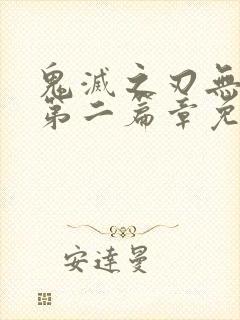 鬼滅之刃無
第二篇章免
安達曼